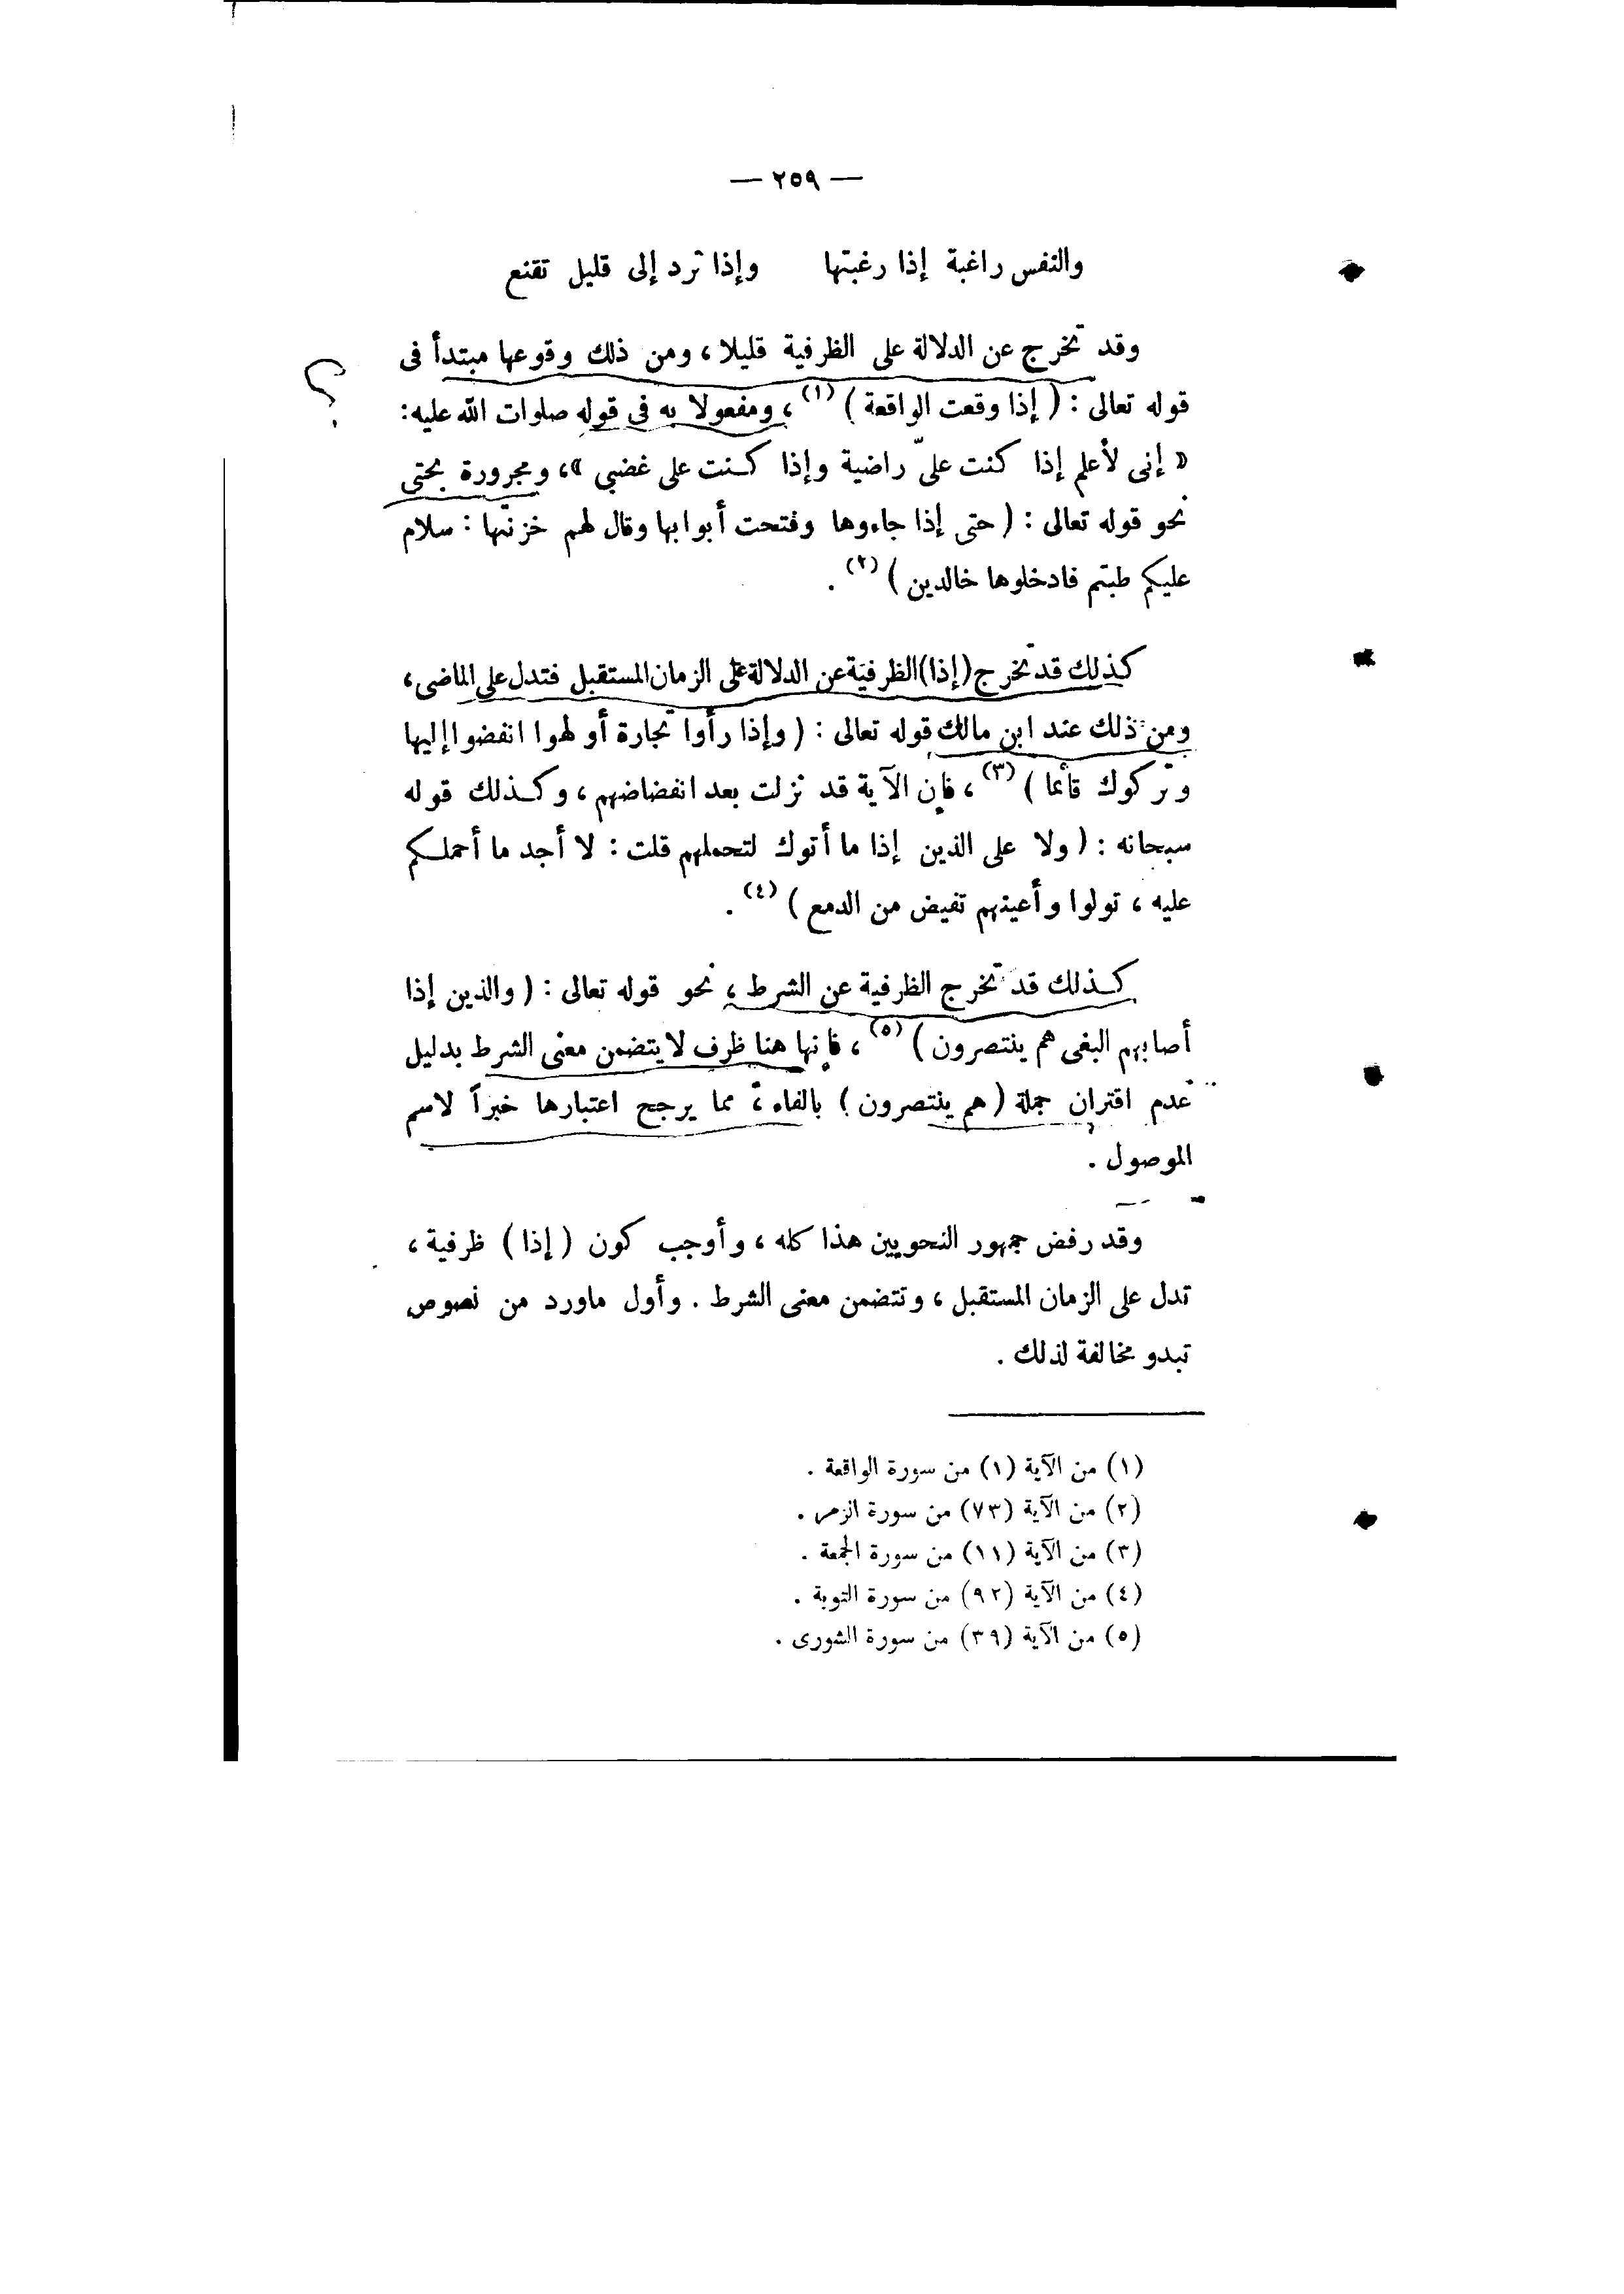 — ٢٥٩ —
والنفس راغبة إذا رغبتها وإذا ترد إلى قليل تقنع
وقد تخرج عن الدلالة على الظرفية قليلا ، ومن ذلك وقوعها مبتدأ فى
قوله تعالى : ( إذا وقعت الواقعة ) (١) ، ومفعولا به فى قوله صلوات الله عليه :
« إنى لأعلم إذا كنت علىّ راضية وإذا كنت على غضبي » ، ومجرورة بحتى
نحو قوله تعالى : ( حتى إذا جاءوها وفتحت أبوابها وقال لهم خزنتها : سلام
عليكم طبتم فادخلوها خالدين ) (٢) .
كذلك قد تخرج (إذا) الظرفية عن الدلالة على الزمان المستقبل فتدل على الماضى ،
ومن ذلك عند ابن مالك قوله تعالى : ( وإذا رأوا تجارة أو لهوا انفضوا إليها
وتركوك قائما ) (٣) ، فإن الآية قد نزلت بعد انفضاضهم ، وكذلك قوله
سبحانه : ( ولا على الذين إذا ما أتوك لتحملهم قلت : لا أجد ما أحملكم
عليه ، تولوا وأعينهم تفيض من الدمع ) (٤) .
كذلك قد تخرج الظرفية عن الشرط ، نحو قوله تعالى : ( والذين إذا
أصابهم البغى هم ينتصرون ) (٥) ، فإنها هنا ظرف لا يتضمن معنى الشرط بدليل
عدم اقتران جملة ( هم ينتصرون ) بالفاء ، مما يرجح اعتبارها خبراً لاسم
الموصول .
وقد رفض جمهور النحويين هذا كله ، وأوجب كون ( إذا ) ظرفية ،
تدل على الزمان المستقبل ، وتتضمن معنى الشرط . وأول ماورد من نصوص
تبدو مخالفة لذلك .
(١) من الآية (١) من سورة الواقعة .
(٢) من الآية (٧٣) من سورة الزمر .
(٣) من الآية (١١) من سورة الجمعة .
(٤) من الآية (٩٢) من سورة التوبة .
(٥) من الآية (٣٩) من سورة الشورى .
؟